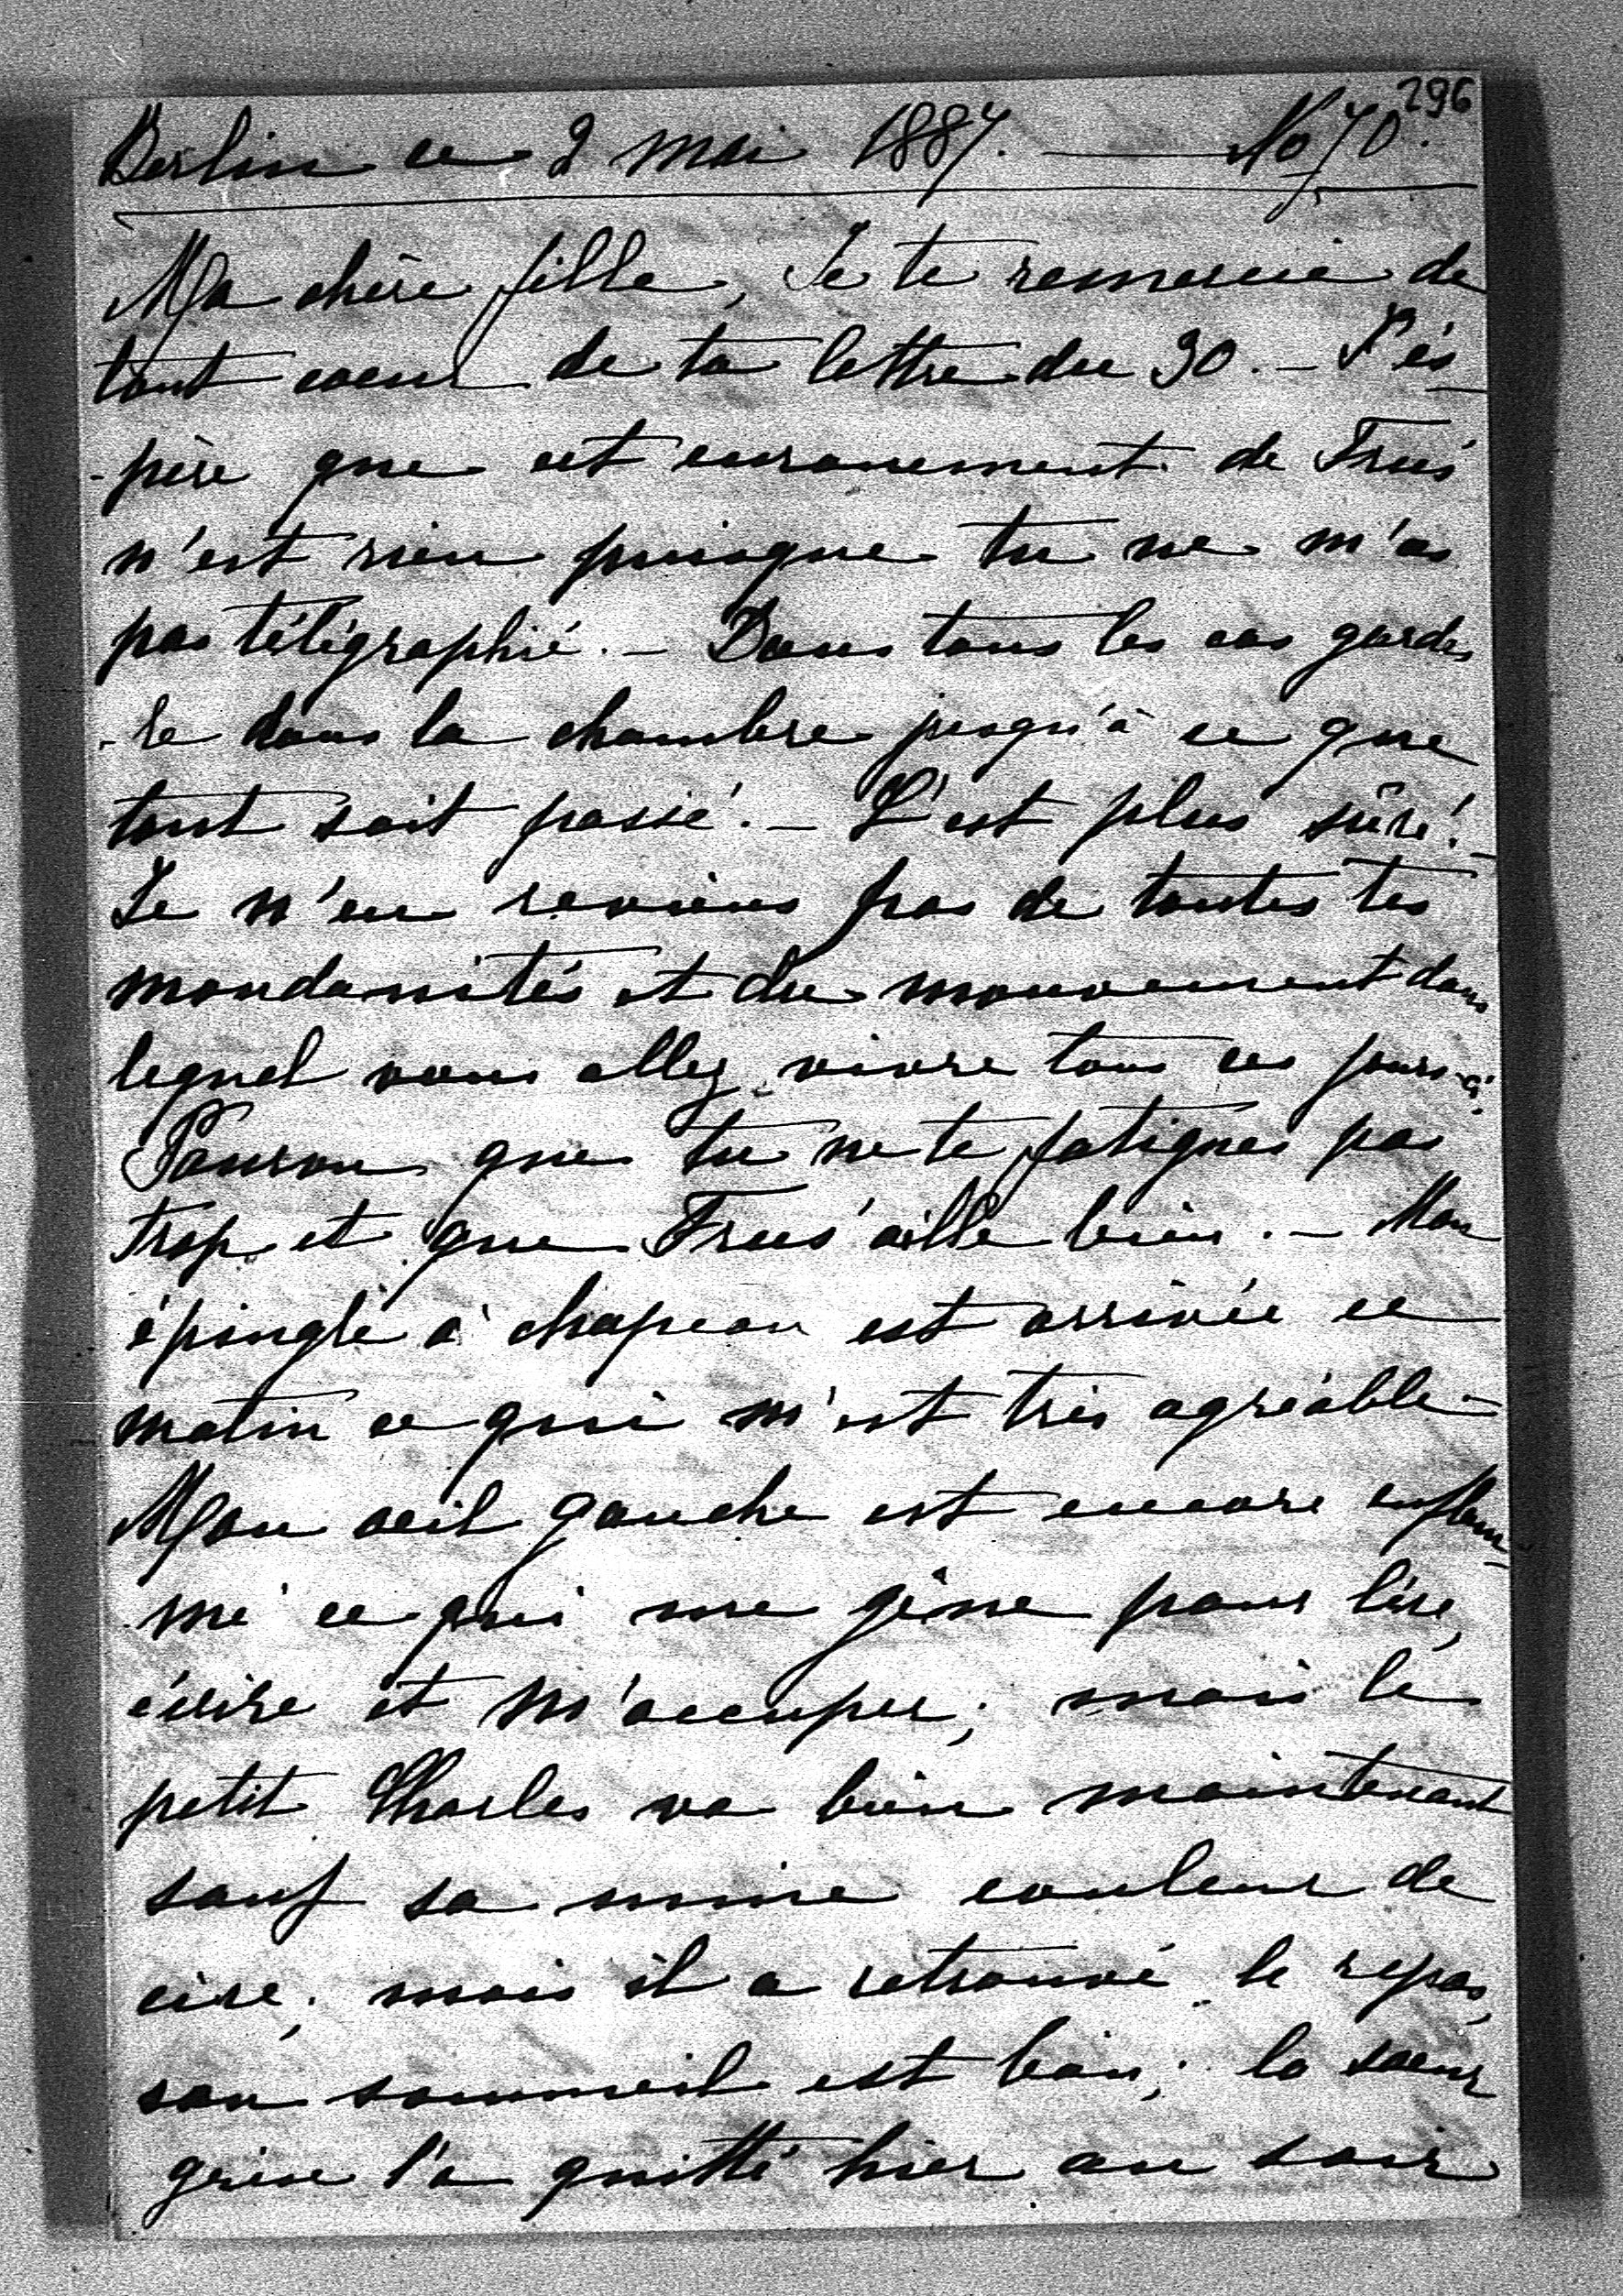 296
Berlin ce 2 mai 1887. No 70.
Ma chère fille, Je te remercie de
tout coeur de ta lettre du 30. — J'es-
-père que cet enrouement de Freds
n'est rien puisque tu ne m'as
pas télégraphié. — Dans tous les cas gardes
-le dans la chambre jusqu'à ce que
tout soit passé. — C'est plus sûre! —
Je n'en reviens pas de toutes tes
mondanités et du mouvement dans
lequel vous allez vivre tous ces jours-ci.
Pourvu que tu ne te fatigues pas
trop et que aille bien. — Mon
épingle à chapeau est arrivée ce
matin ce qui m'est très agréable —
Mon oeil gauche est encore enflam-
-mé ce qui me gène pour lire,
écrire et m'occuper; mais le
petit Charles va bien maintenant
sauf sa mine couleur de
cire; mais il a retrouvé le repos,
son sommeil est bon; la soeur
grise l'a quitté hier au soir